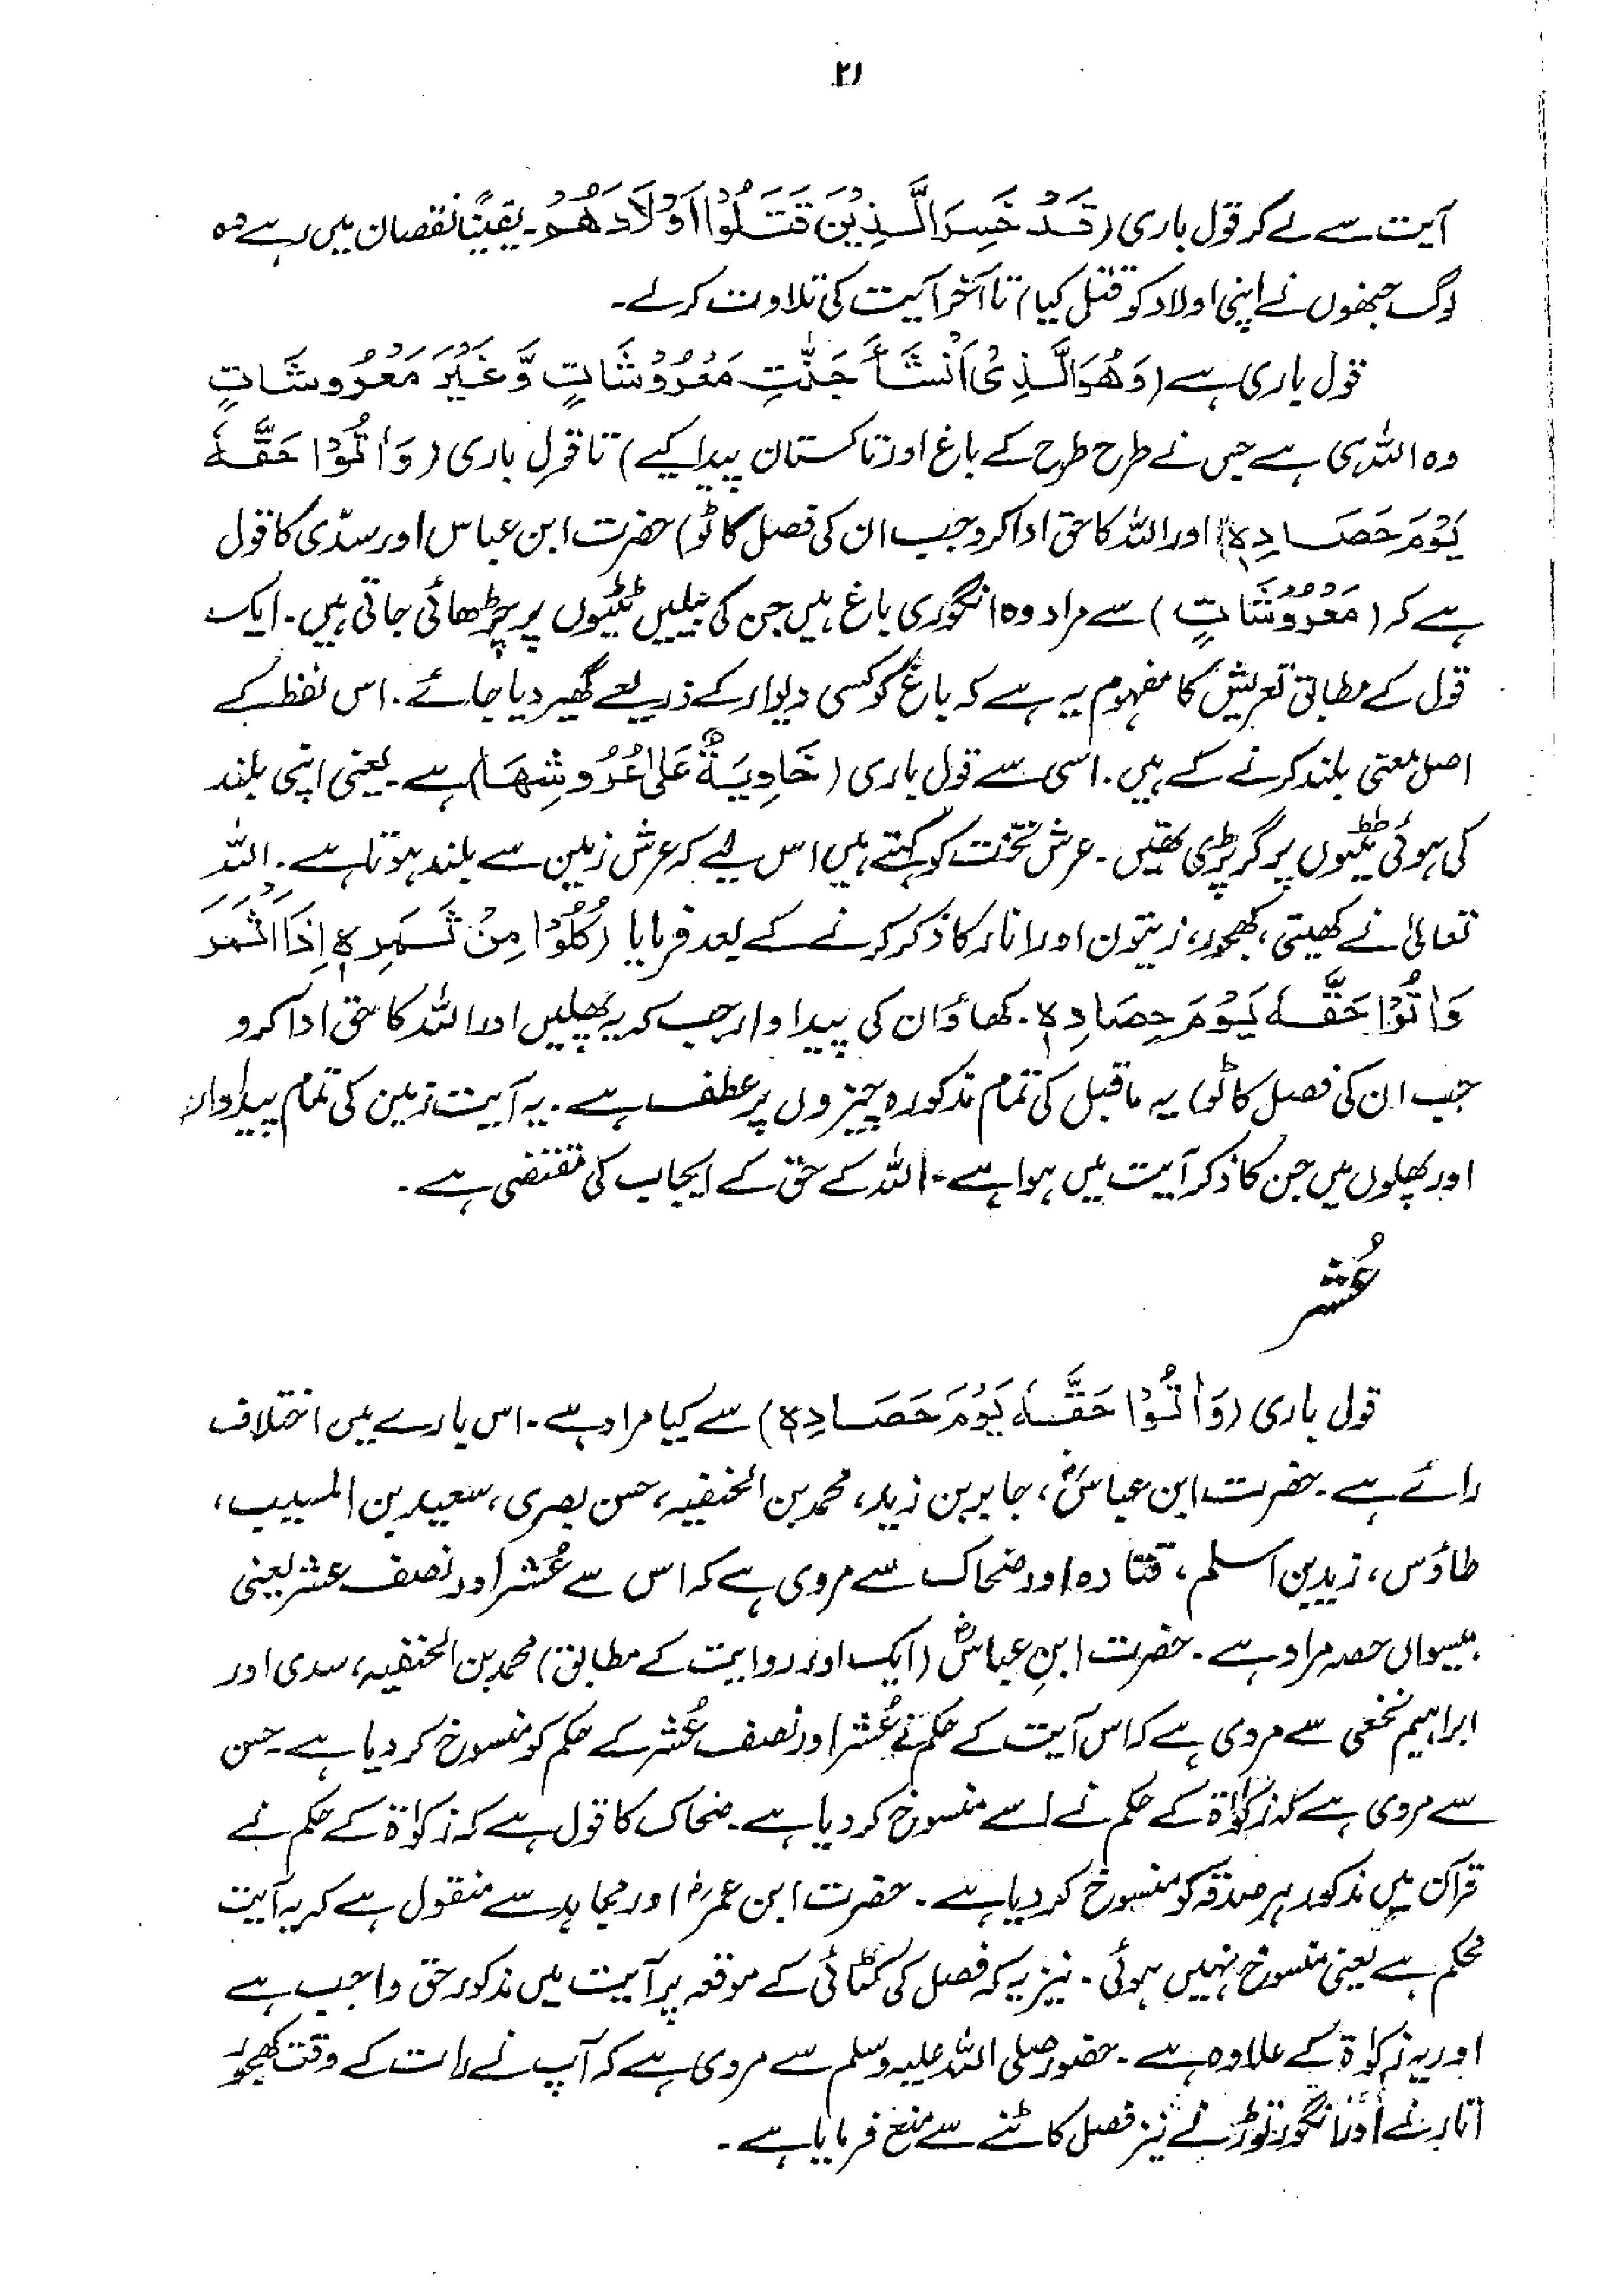 ۲۱
آیت سے لے کر قول باری (قَدْ خَسِرَ الَّذِیْنَ قَتَلُوْا اَوْلَادَھُمْ۔ یقیناً نقصان میں رہے وہ
لوگ جنھوں نے اپنی اولاد کو قتل کیا) تا آخر آیت کی تلاوت کرلے۔
قول باری ہے (وَھُوَ الَّذِیْ اَنْشَأَ جَنّٰتٍ مَعْرُوْشَاتٍ وَّغَیْرَ مَعْرُوشَاتٍ
وہ اللہ ہی ہے جس نے طرح طرح کے باغ اور تاکستان پیدا کیے) تا قول باری (وَاٰتُوْا حَقَّہٗ
یَوْمَ حَصَادِہٖ) اور اللہ کا حق ادا کرو جب ان کی فصل کاٹو) حضرت ابن عباس اور سدّی کا قول
ہے کہ (مَعْرُوْشَاتٍ) سے مراد وہ انگوری باغ ہیں جن کی بیلیں ٹٹیوں پر چڑھائی جاتی ہیں۔ ایک
قول کے مطابق تعریش کا مفہوم یہ ہے کہ باغ کو کسی دیوار کے ذریعے گھیر دیا جائے۔ اس لفظ کے
اصل معنی بلند کرنے کے ہیں۔ اسی سے قول باری (خَاوِیَۃٌ عَلٰی عُرُوشِھَا) ہے یعنی اپنی بلند
کی ہوئی ٹٹیوں پر گر پڑی تھیں۔ عرش تخت کو کہتے ہیں اس لیے کہ عرش زمین سے بلند ہوتا ہے۔ اللہ
تعالیٰ نے کھیتی، کھجور، زیتون اور انار کا ذکر کرنے کے بعد فرمایا (کُلُوْا مِنْ ثَمَرِہٖ اِذَا اَثْمَرَ
وَاٰتُوْا حَقَّہٗ یَوْمَ حِصَادِہٖ۔ کھاؤ ان کی پیداوار جب کہ یہ پھلیں اور اللہ کا حق ادا کرو
جب ان کی فصل کاٹو) یہ ماقبل کی تمام مذکورہ چیزوں پر عطف ہے۔ یہ آیت زمین کی تمام پیداوار
اور پھلوں میں جن کا ذکر آیت میں ہوا ہے۔ اللہ کے حق کے ایجاب کی مقتضی ہے۔
عُشر
قول باری (وَاٰتُوْا حَقَّہٗ یَوْمَ حَصَادِہٖ) سے کیا مراد ہے۔ اس بارے میں اختلاف
رائے ہے۔ حضرت ابن عباسؓ، جابر بن زید، محمد بن الحنفیہ، حسن بصری، سعید بن المسیب،
طاؤس، زید بن اسلم، قتادہ اور ضحاک سے مروی ہے کہ اس سے عُشر اور نصف عشر یعنی
بیسواں حصہ مراد ہے۔ حضرت ابنِ عباسؓ (ایک اور روایت کے مطابق) محمد بن الحنفیہ، سدی اور
ابراہیم نخعی سے مروی ہے کہ اس آیت کے حکم نے عُشر اور نصف عُشر کے حکم کو منسوخ کر دیا ہے۔ حسن
سے مروی ہے کہ زکوٰۃ کے حکم نے اسے منسوخ کر دیا ہے۔ ضحاک کا قول ہے کہ زکوٰۃ کے حکم نے
قرآن میں مذکور ہر صدقہ کو منسوخ کر دیا ہے۔ حضرت ابن عمرؓ اور مجاہد سے منقول ہے کہ یہ آیت
محکم ہے یعنی منسوخ نہیں ہوئی۔ نیز یہ کہ فصل کی کٹائی کے موقعہ پر آیت میں مذکور حق واجب ہے
اور یہ زکوٰۃ کے علاوہ ہے۔ حضور صلی اللہ علیہ وسلم سے مروی ہے کہ آپ نے رات کے وقت کھجور
اتارنے اور انگور توڑنے نیز فصل کاٹنے سے منع فرمایا ہے۔